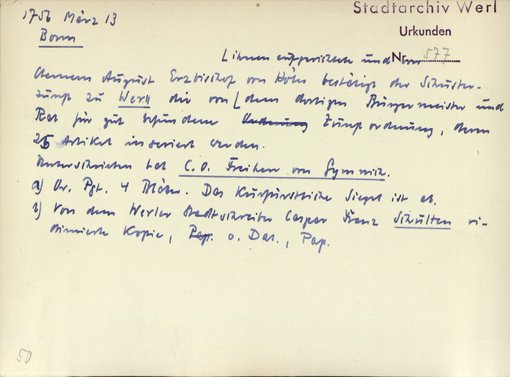 1756 März 13
Stadtarchiv Werl
Urkunden
Nr. 577
Bonn
ihnen aufgerichtete und von
Clemens August Erzbischof von Köln bestätigt der Schuster-
zunft zu Werl die von dem dortigen Bürgermeister und
Rat für gut befundene Ordnung Zunftordnung, deren
25 Artikel inseriert werden.
Unterschrieben hat C. O. Freiherr von Gymnich.
a) Or. Pgt. 4 Blätter. Das Kurfürstliche Siegel ist ab.
b) Von dem Werler Stadtschreiber Caspar Franz Schülten vi-
dimierte Kopie, Pap. o. Dat., Pap.
50